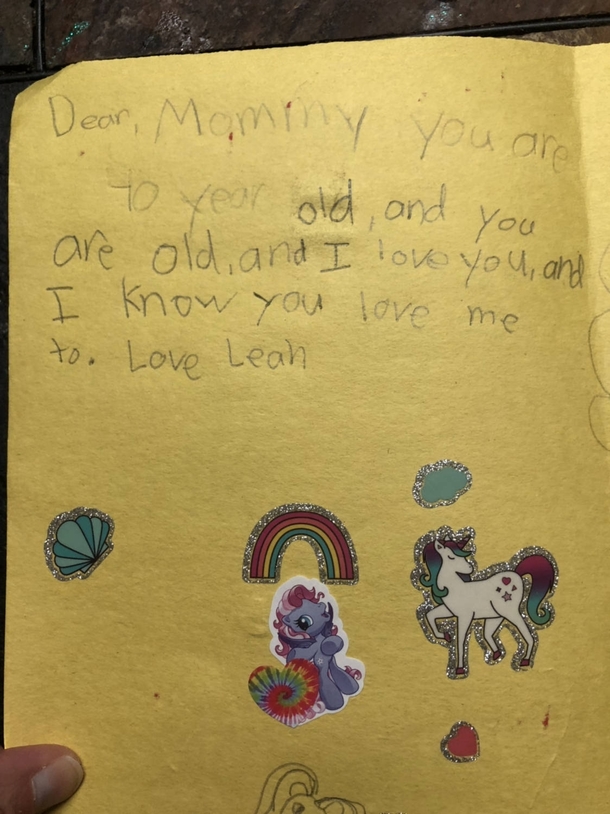 Dear, Mommy you are
40 year old, and you
are old, and I love you, and
I know you love me
to. Love Leah